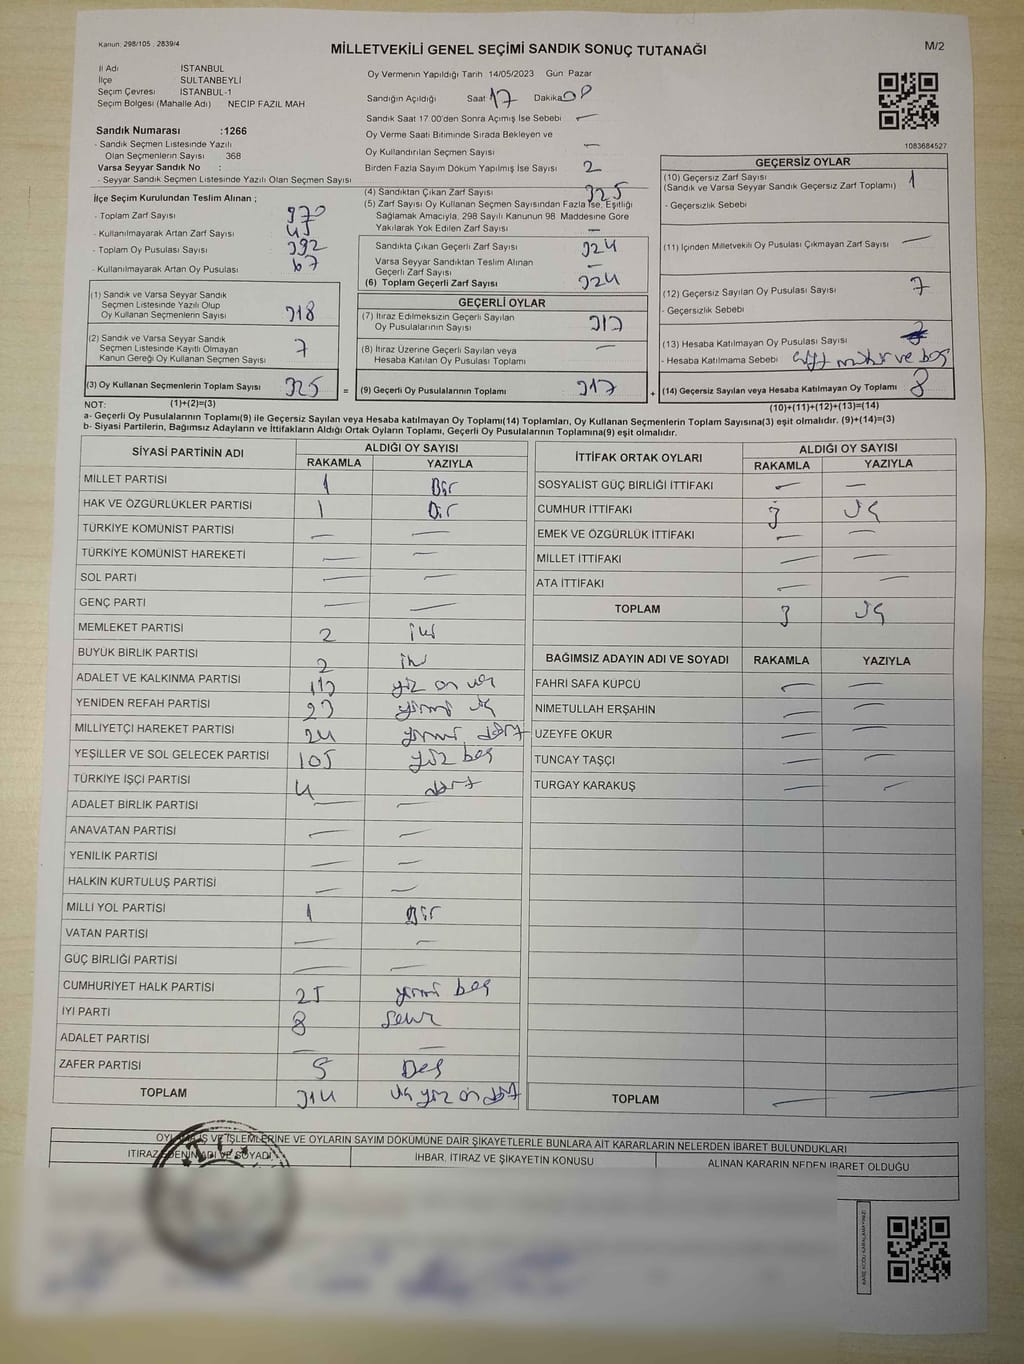 Kanun: 298/105 , 2839/4
MİLLETVEKİLİ GENEL SEÇİMİ SANDIK SONUÇ TUTANAĞI
M/2
İl Adı İSTANBUL
İlçe SULTANBEYLİ
Seçim Çevresi İSTANBUL-1
Seçim Bölgesi (Mahalle Adı) NECİP FAZIL MAH
Sandık Numarası :1266
- Sandık Seçmen Listesinde Yazılı
Olan Seçmenlerin Sayısı 368
Varsa Seyyar Sandık No :
- Seyyar Sandık Seçmen Listesinde Yazılı Olan Seçmen Sayısı
Oy Vermenin Yapıldığı Tarih 14/05/2023 Gün Pazar
Sandığın Açıldığı Saat 17 Dakika 00
Sandık Saat 17:00'den Sonra Açımış İse Sebebi —
Oy Verme Saati Bitiminde Sırada Bekleyen ve
Oy Kullandırılan Seçmen Sayısı —
Birden Fazla Sayım Döküm Yapılmış İse Sayısı 2
1083684527
İlçe Seçim Kurulundan Teslim Alınan ;
- Toplam Zarf Sayısı 370
- Kullanılmayarak Artan Zarf Sayısı 45
- Toplam Oy Pusulası Sayısı 392
- Kullanılmayarak Artan Oy Pusulası 67
(1) Sandık ve Varsa Seyyar Sandık
Seçmen Listesinde Yazılı Olup
Oy Kullanan Seçmenlerin Sayısı 318
(2) Sandık ve Varsa Seyyar Sandık
Seçmen Listesinde Kayıtlı Olmayan
Kanun Gereği Oy Kullanan Seçmen Sayısı 7
(3) Oy Kullanan Seçmenlerin Toplam Sayısı 325 =
(1)+(2)=(3)
(4) Sandıktan Çıkan Zarf Sayısı 325
(5) Zarf Sayısı Oy Kullanan Seçmen Sayısından Fazla İse, Eşitliği
Sağlamak Amacıyla, 298 Sayılı Kanunun 98. Maddesine Göre
Yakılarak Yok Edilen Zarf Sayısı —
Sandıkta Çıkan Geçerli Zarf Sayısı 324
Varsa Seyyar Sandıktan Teslim Alınan
Geçerli Zarf Sayısı —
(6) Toplam Geçerli Zarf Sayısı 324
GEÇERLİ OYLAR
(7) İtiraz Edilmeksizin Geçerli Sayılan
Oy Pusulalarının Sayısı 317
(8) İtiraz Üzerine Geçerli Sayılan veya
Hesaba Katılan Oy Pusulası Toplamı —
(9) Geçerli Oy Pusulalarının Toplamı 317 +
GEÇERSİZ OYLAR
(10) Geçersiz Zarf Sayısı 1
(Sandık ve Varsa Seyyar Sandık Geçersiz Zarf Toplamı)
- Geçersizlik Sebebi
(11) İçinden Milletvekili Oy Pusulası Çıkmayan Zarf Sayısı —
(12) Geçersiz Sayılan Oy Pusulası Sayısı 7
- Geçersizlik Sebebi
(13) Hesaba Katılmayan Oy Pusulası Sayısı
- Hesaba Katılmama Sebebi çift mühür ve boş
(14) Geçersiz Sayılan veya Hesaba Katılmayan Oy Toplamı 8
(10)+(11)+(12)+(13)=(14)
NOT:
a- Geçerli Oy Pusulalarının Toplamı(9) ile Geçersiz Sayılan veya Hesaba Katılmayan Oy Toplamı(14) Toplamları, Oy Kullanan Seçmenlerin Toplam Sayısına(3) eşit olmalıdır. (9)+(14)=(3)
b- Siyasi Partilerin, Bağımsız Adayların ve İttifakların Aldığı Ortak Oyların Toplamı, Geçerli Oy Pusulalarının Toplamına(9) eşit olmalıdır.
SİYASİ PARTİNİN ADI ALDIĞI OY SAYISI
RAKAMLA YAZIYLA
MİLLET PARTİSİ 1 Bir
HAK VE ÖZGÜRLÜKLER PARTİSİ 1 Bir
TÜRKİYE KOMÜNİST PARTİSİ — —
TÜRKİYE KOMÜNİST HAREKETİ — —
SOL PARTİ — —
GENÇ PARTİ — —
MEMLEKET PARTİSİ 2 iki
BÜYÜK BİRLİK PARTİSİ 2 iki
ADALET VE KALKINMA PARTİSİ 113 yüz on üç
YENİDEN REFAH PARTİSİ 23 yirmi üç
MİLLİYETÇİ HAREKET PARTİSİ 24 yirmi dört
YEŞİLLER VE SOL GELECEK PARTİSİ 105 yüz beş
TÜRKİYE İŞÇİ PARTİSİ 4 dört
ADALET BİRLİK PARTİSİ — —
ANAVATAN PARTİSİ — —
YENİLİK PARTİSİ — —
HALKIN KURTULUŞ PARTİSİ — —
MİLLİ YOL PARTİSİ 1 Bir
VATAN PARTİSİ — —
GÜÇ BİRLİĞİ PARTİSİ — —
CUMHURİYET HALK PARTİSİ 25 yirmi beş
İYİ PARTİ 8 sekiz
ADALET PARTİSİ — —
ZAFER PARTİSİ 5 Beş
TOPLAM 314 üç yüz on dört
İTTİFAK ORTAK OYLARI ALDIĞI OY SAYISI
RAKAMLA YAZIYLA
SOSYALİST GÜÇ BİRLİĞİ İTTİFAKI — —
CUMHUR İTTİFAKI 3 üç
EMEK VE ÖZGÜRLÜK İTTİFAKI — —
MİLLET İTTİFAKI — —
ATA İTTİFAKI — —
TOPLAM 3 üç
BAĞIMSIZ ADAYIN ADI VE SOYADI RAKAMLA YAZIYLA
FAHRİ SAFA KÜPCÜ — —
NİMETULLAH ERŞAHİN — —
UZEYFE OKUR — —
TUNCAY TAŞÇI — —
TURGAY KARAKUŞ — —
TOPLAM — —
OYLAMA İŞ VE İŞLEMLERİNE VE OYLARIN SAYIM DÖKÜMÜNE DAİR ŞİKAYETLERLE BUNLARA AİT KARARLARIN NELERDEN İBARET BULUNDUKLARI
İTİRAZ EDENİN ADI VE SOYADI İHBAR, İTİRAZ VE ŞİKAYETİN KONUSU ALINAN KARARIN NEDEN İBARET OLDUĞU